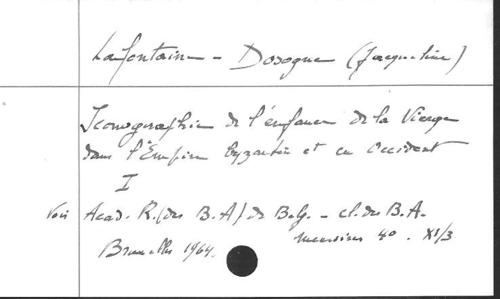 Lafontaine - Dosogne (Jacqueline)
Iconographie de l'enfance de la Vierge
dans l'Empire byzantin et en Occident
I
Voir Acad. R. (des B.A) de Belg. - cl. des B.A.
Memoires 4°. XI/3
Bruxelles 1964.